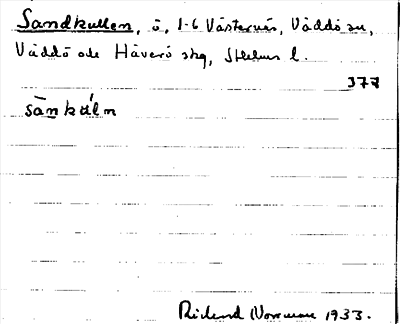 Sandkullen, ö, 1-6 Västernäs, Väddö sn,
Väddö och Häverö skg, Sthlms l.
377
sānkúln
Rickard Norrman 1933.